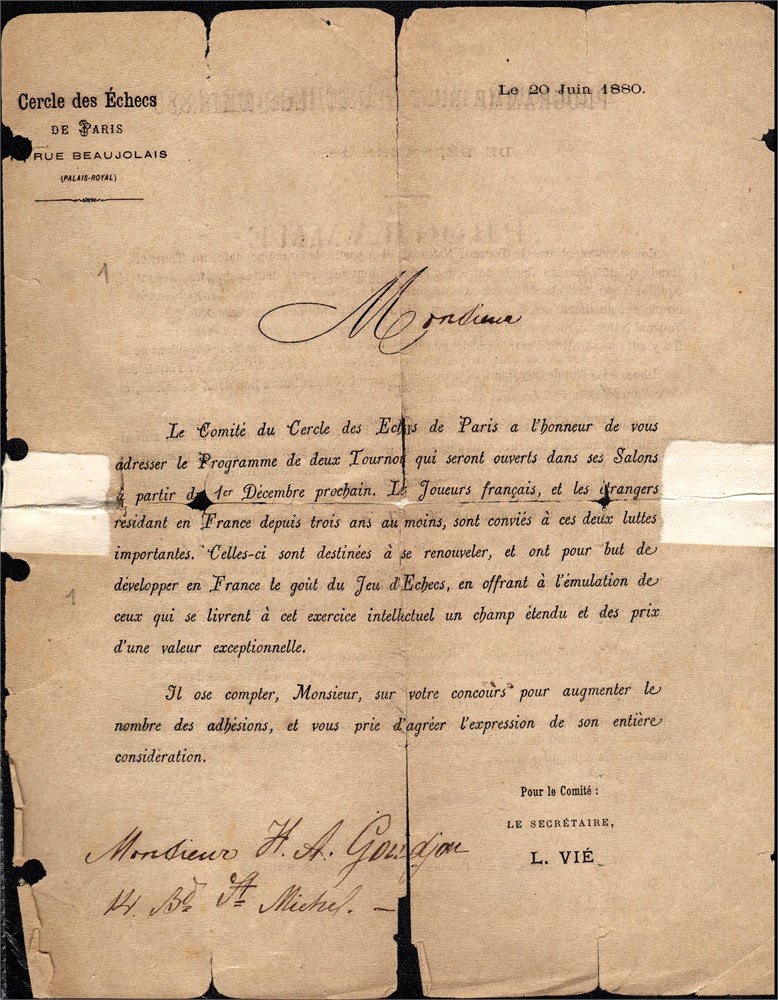 Cercle des Échecs
DE PARIS
RUE BEAUJOLAIS
(PALAIS-ROYAL)
Le 20 Juin 1880.
1
Monsieur
Le Comité du Cercle des Echecs de Paris a l'honneur de vous
adresser le Programme de deux Tournois qui seront ouverts dans ses Salons
à partir du 1er Décembre prochain. Les Joueurs français, et les étrangers
résidant en France depuis trois ans au moins, sont conviés à ces deux luttes
importantes. Celles-ci sont destinées à se renouveler, et ont pour but de
développer en France le goût du Jeu d'Echecs, en offrant à l'émulation de
1
ceux qui se livrent à cet exercice intellectuel un champ étendu et des prix
d'une valeur exceptionnelle.
Il ose compter, Monsieur, sur votre concours pour augmenter le
nombre des adhésions, et vous prie d'agréer l'expression de son entière
considération.
Pour le Comité :
LE SECRÉTAIRE,
L. VIÉ
Monsieur H. A. Goudjou
14. Bd St Michel. —